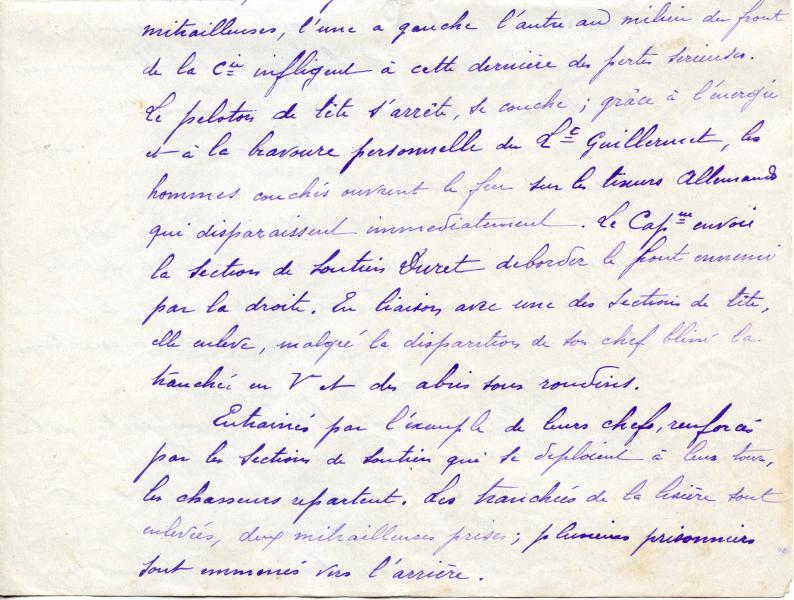 mitrailleuses, l'une a gauche l'autre au milieu du front
de la Cie infligent à cette dernière des pertes serieuses.
Le peloton de tête s'arrête, se couche ; grâce à l'énergie
et à la bravoure personnelle du Lt Guillermet, les
hommes couchés ouvrent le feu sur les tireurs Allemands
qui disparaissent immediatement. Le Capne envoie
la section de soutien Duret deborder le front ennemi
par la droite. En liaison avec une des sections de tête,
elle enleve, malgré la disparition de son chef blessé la
tranchée en V et des abris sous rondins.
Entrainés par l'exemple de leurs chefs, renforcés
par les sections de soutien qui se deploient à leur tour,
les chasseurs repartent. Les tranchées de la lisière sont
enlevées, deux mitrailleuses prises ; plusieurs prisonniers
sont emmenés vers l'arrière.